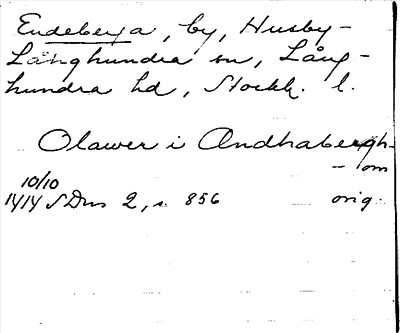 Endeberga, by, Husby-
Långhundra sn, Lång-
hundra hd, Stockh. l.
Olawer i Andhabergh-
- om
10/10
1414 SDns 2, s. 856 orig.